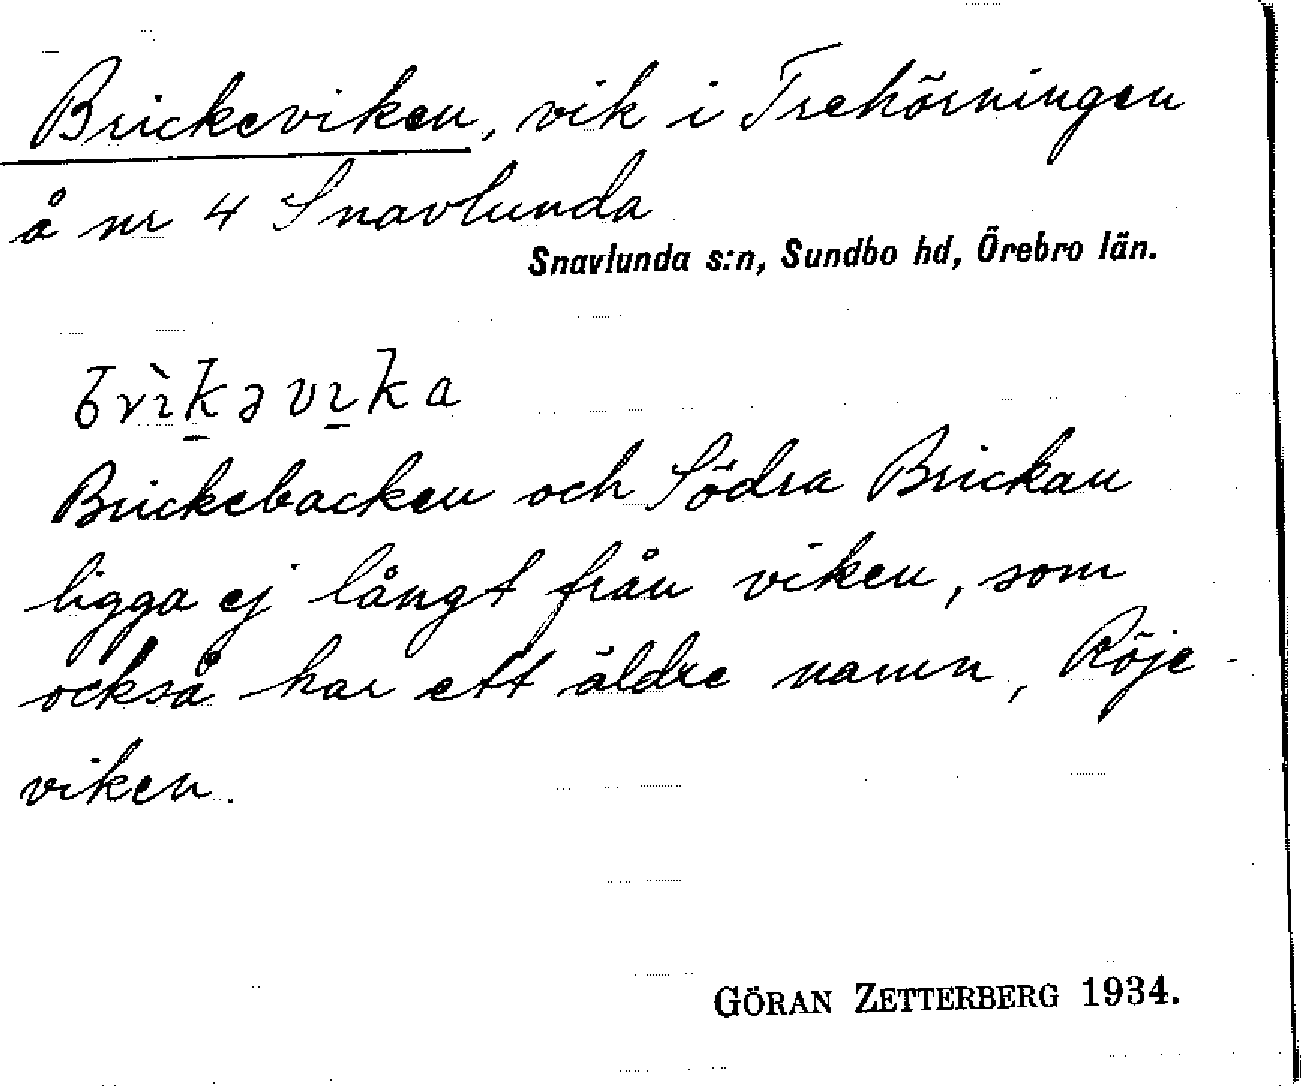 Brickeviken, vik i Trehörningen
å nr 4 Snavlunda
Snavlunda s:n, Sundbo hd, Örebro län.
brìk̠əvɪ̠ka
Brickebacken och Södra Brickan
ligga ej långt från viken, som
också har ett äldre namn, Röje-
viken.
GÖRAN ZETTERBERG 1934.